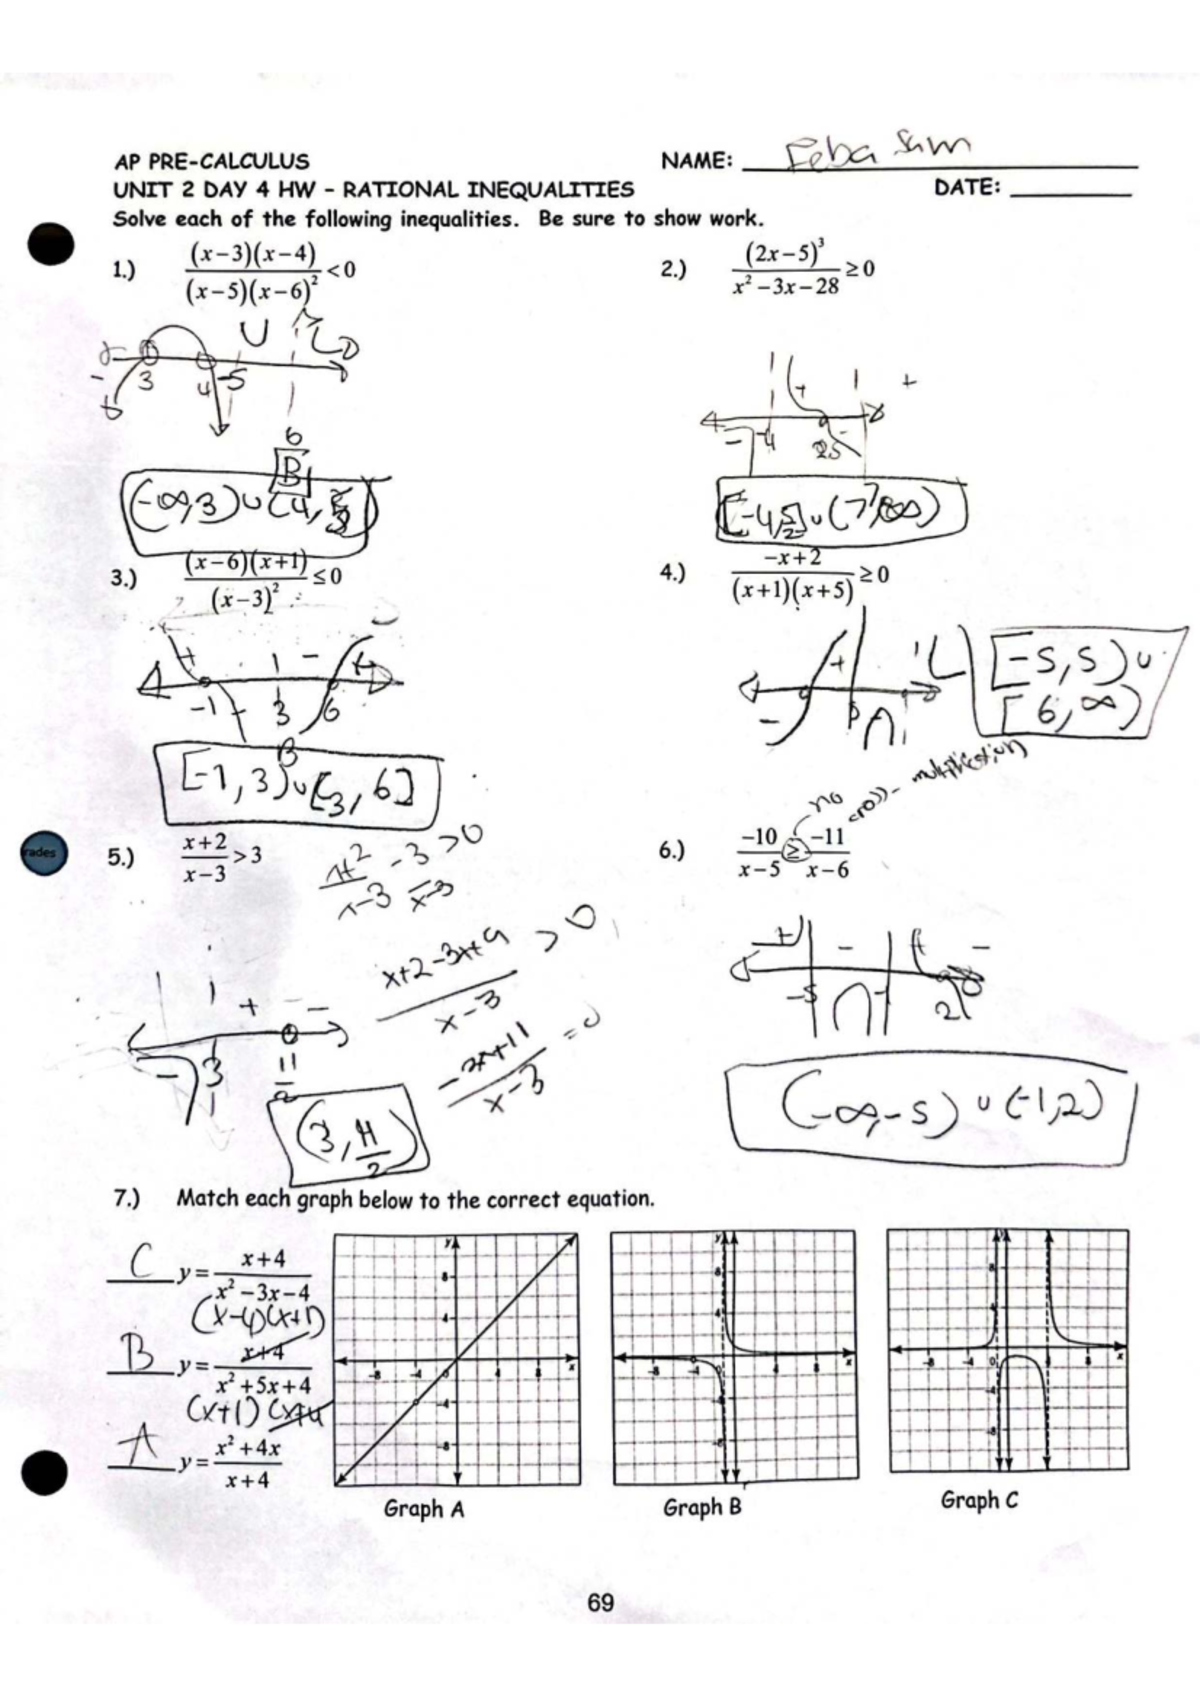 AP PRE-CALCULUS
NAME: Feba Sam
UNIT 2 DAY 4 HW - RATIONAL INEQUALITIES
DATE:
Solve each of the following inequalities. Be sure to show work.
1.) (x-3)(x-4)/(x-5)(x-6)² <0
3 4 5
6
B
(-∞,3)∪(4,5)
2.) (2x-5)³/x²-3x-28 ≥0
+ +
- -4 2.5 -
[-4,5/2]∪(7,∞)
3.) (x-6)(x+1)/(x-3)² ≤0
+ - +
-1 - 3 6
[-1,3)∪(3,6]
4.) -x+2/(x+1)(x+5) ≥0
+
-
[-5,5)∪
[6,∞)
rades
5.) x+2/x-3 >3
x+2/x-3 -3 >0
x-3
x+2-3x+9/x-3 >0
-2x+11/x-3 =0
+ -
- 3 11/2
(3,11/2)
6.) -10/x-5 ≥ -11/x-6
no
cross-multiplication
+ - + -
-5 -1 2
(-∞,-5)∪(-1,2)
7.) Match each graph below to the correct equation.
C y= x+4/x²-3x-4
(x-4)(x+1)
B y= x+4/x²+5x+4
(x+1)(x+4)
A y= x²+4x/x+4
y
8
4
-8 -4 0 4 8 x
-4
-8
Graph A
y
8
4
-8 -4 0 4 8 x
-8
Graph B
y
8
4
-8 -4 0 4 8 x
-4
-8
Graph C
69